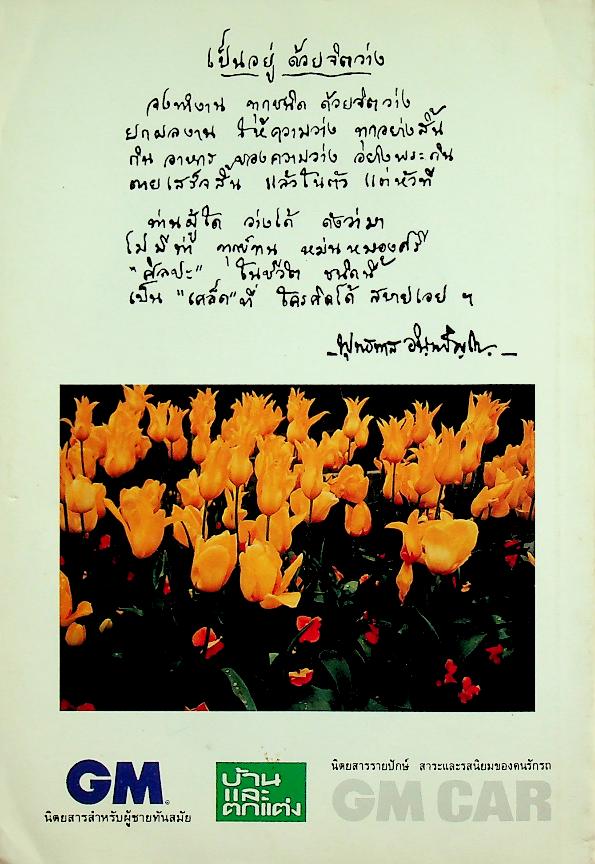 เป็นอยู่ ด้วยจิตว่าง
จงทำงาน ทุกชนิด ด้วยจิตว่าง
ยกผลงาน ให้ความว่าง ทุกอย่างสิ้น
กิน อาหาร ของความว่าง อย่างพระกิน
ตายเสร็จสิ้น แล้วในตัว แต่หัวที
ท่านผู้ใด ว่างได้ ดังว่ามา
ไม่มีท่า ทุกข์ทน หม่นหมองศรี
"ศิลปะ" ในชีวิต ชนิดนี้
เป็น "เคล็ด" ที่ ใครคิดได้ สบายเอย ฯ
พุทธทาส อินฺทปญฺโญ
GM
นิตยสารสำหรับผู้ชายทันสมัย
บ้าน
และ
ตกแต่ง
นิตยสารรายปักษ์ สาระและรสนิยมของคนรักรถ
GM CAR